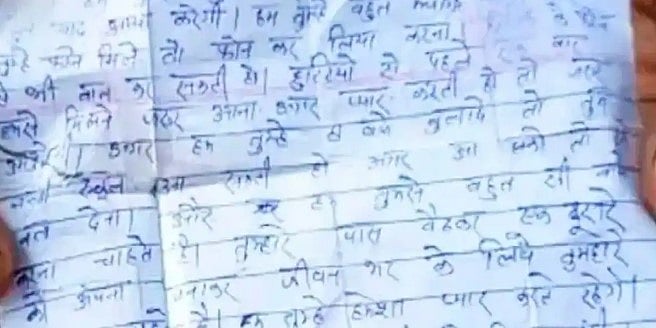 याद आया करेगी। हम तुम्हे बहुत
तुम्हे फोन मिले तो फोन कर लिया करना।
भी बात कर सकती हो। छुट्टियो से पहले बार
हमसे मिलने जरूर आना अगर प्यार करती हो तो जरूर
अगर हम तुम्हे 8 बजे बुलाये तो तुम
स्कूल आ सकती हो अगर आ सको तो
बता देना। और हम तुमसे बहुत सी
करना चाहते है। तुम्हारे पास बैठकर एक दूसरे
को अपना बनाकर जीवन भर के लिये तुम्हारे
है। हम तुम्हे हमेशा प्यार करते रहेगे।